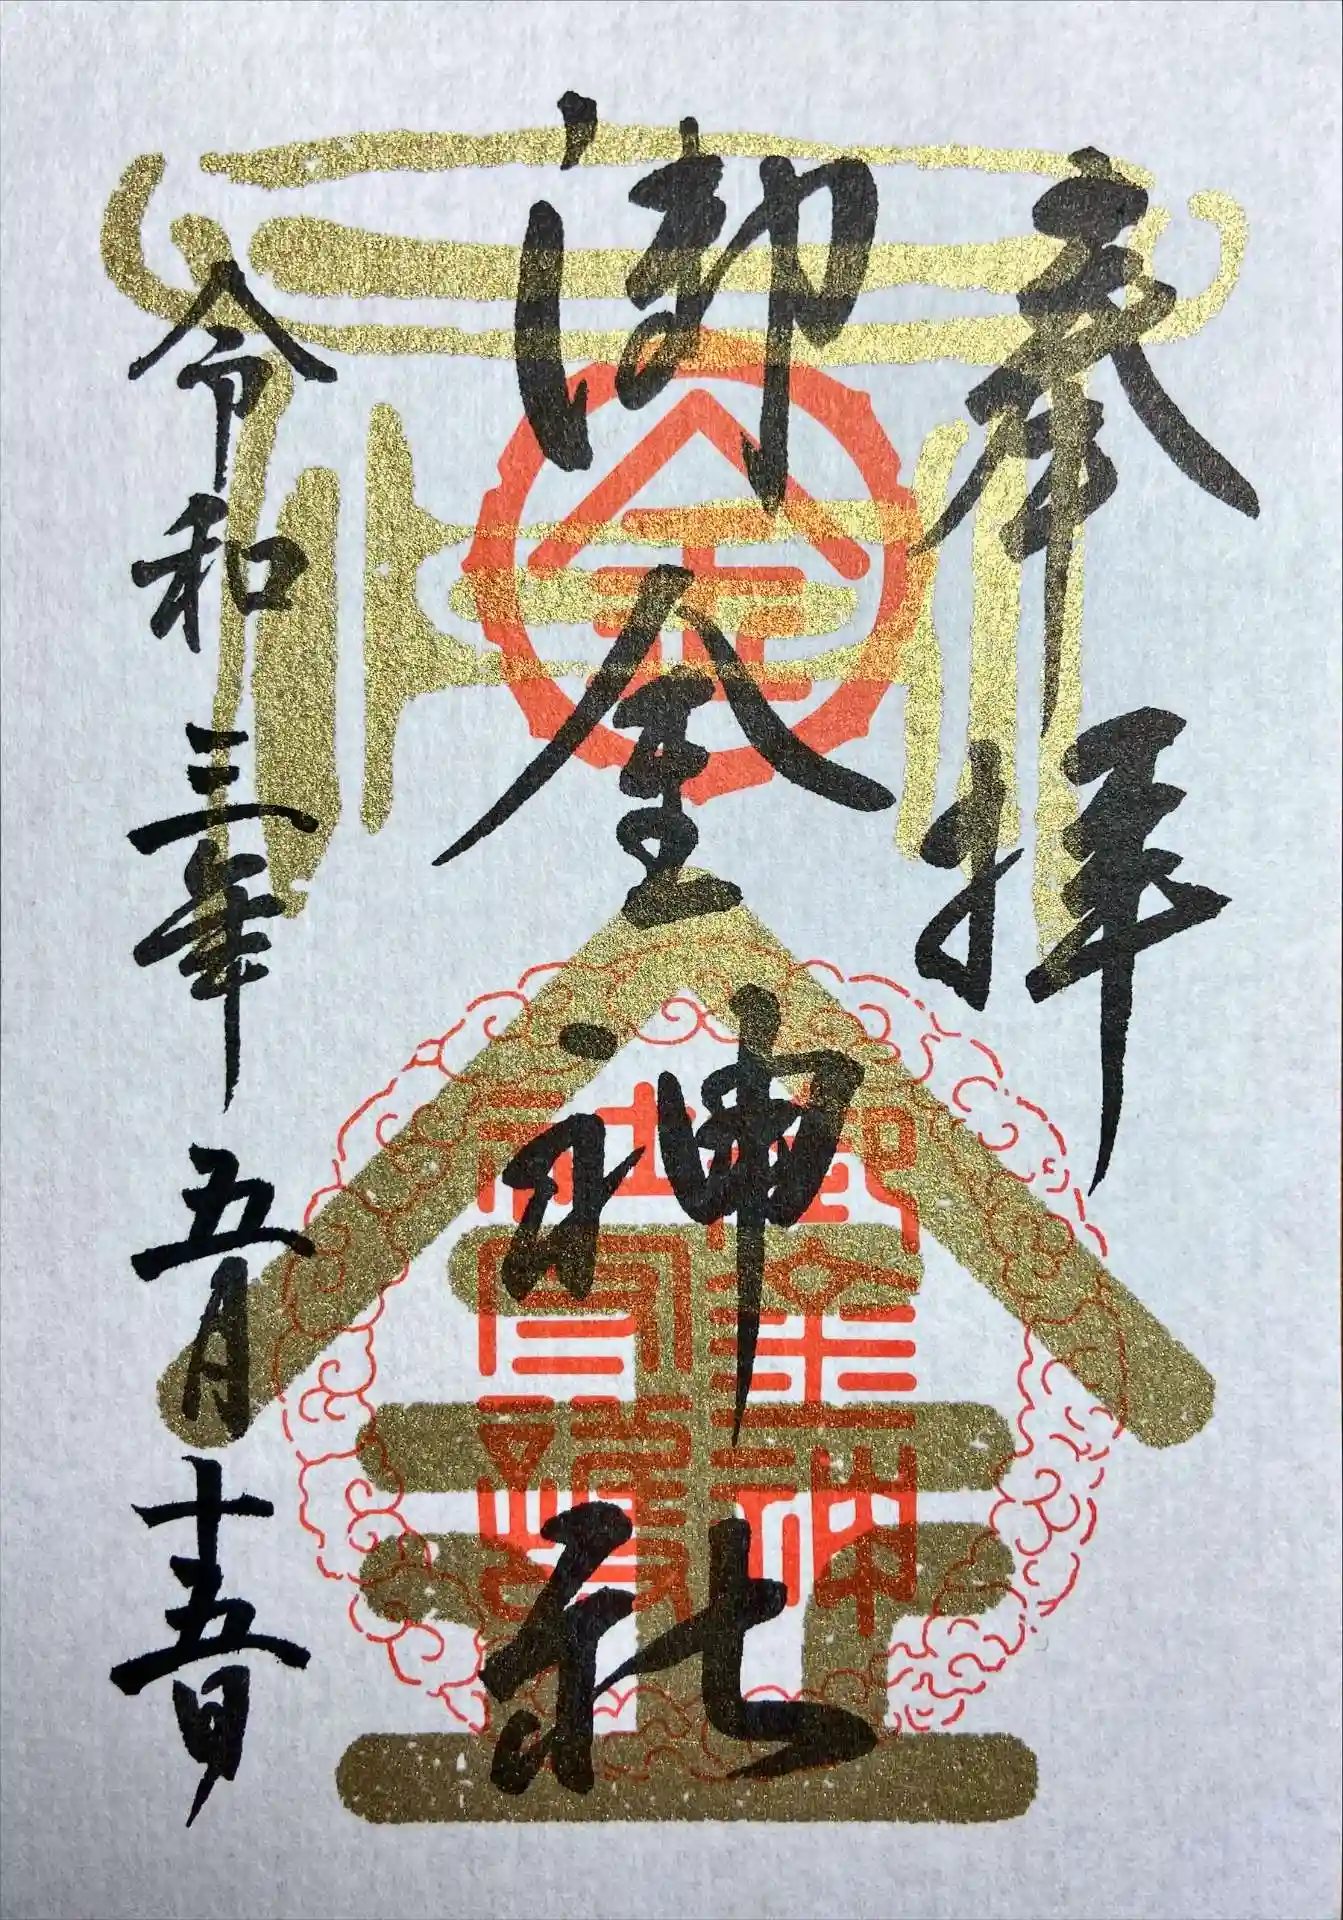 奉拝
御金神社
令和三年五月十五日
金
金
御金神社